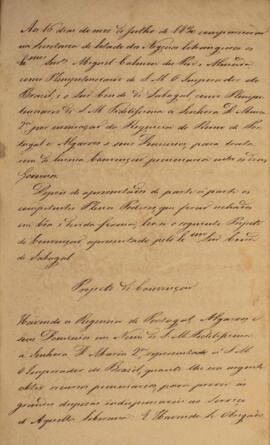 Ao 15 dias do mez de Julho de 1830 compareceram
na Secretaria de Estado dos Negocios Estrangeiros os
Ex.mos Snr.s Miguel Calmon du Pin e Almeida
como Plenipotenciario de S. M. O Imperador do
Brasil, e o Snr. Conde de Sabugal como Plenipo-
tenciario de S. M. Fidelissima a Senhora D. Maria
2.ª por nomeação da Regencia do Reino de Por-
tugal e Algarves e seus Dominios, para tratar
em de huma Convenção pecuniaria entre os dous
Governos.
Depois de apresentados de parte a parte os
competentes Plenos Poderes que foram achados
em boa e devida forma, leo-se o seguinte Projecto
de Convenção apresentado pelo Ex.mo Snr. Conde
de Sabugal.
Projecto de Convenção
Havendo a Regencia de Portugal, Algarves, e
seus Dominios em Nome de S. M. Fidelissima
a Senhora D. Maria 2.ª representado a S. M.
O Imperador do Brasil, quanto lhe era urgente
obter recursos pecuniarios, para prover ás
grandes despezas indispensaveis ao Serviço
d'Aquella Soberana. E Havendo Se Obrigado